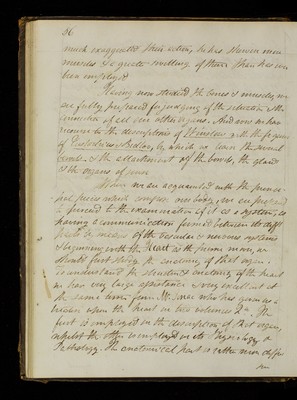 86
much exaggerated their action, he has shewn more
muscles & a greater swelling of them than has ever
been employed
Having now studied the bones & muscles, we
are fully prepared for judging of the situation & the
formation of all our other organs. And now we have
recourse to the descriptions of Winslow with the figures
of by which we learn the several
& the attachment of the bowels, the glands
& the organs of
When we are acquainted with the princi-
pal pieces which compose our body, we are prepared
to proceed to the examination of it as a system, as
having a communication formed between its diff
parts by means of the vascular & nervous systems
& beginning with the Heart as the primum movens, we
should first study the anatomy of that organ.
To understand the structure & anatomy of the heart
we have very large assistance & very excellent at
the same time from Mr. who has given us a
treatise upon the heart in two volumes The
first is employed in the description of that organ,
whilst the other is employed in its Physiology &
Pathology. The anatomical part is rather more diffu